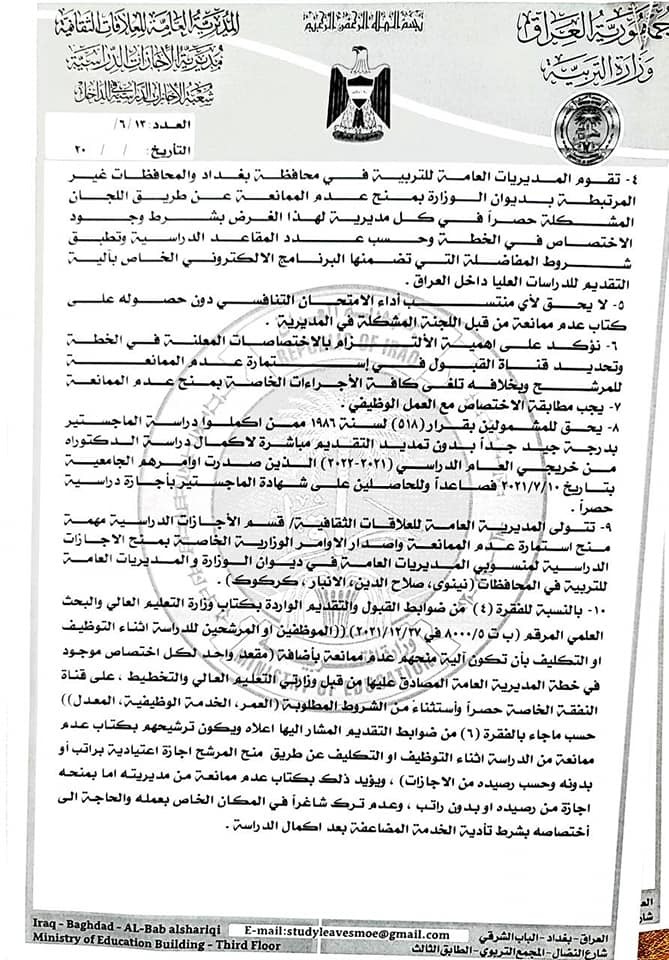 بسم الله الرحمن الرحيم
جمهورية العراق
وزارة التربية
المديرية العامة للعلاقات الثقافية
مديرية الاجازات الدراسية
شعبة الاجازات الدراسية في الداخل
العدد: ١٣ /٦/
التاريخ: / / ٢٠
٤- تقوم المديريات العامة للتربية في محافظة بغداد والمحافظات غير
المرتبطة بديوان الوزارة بمنح عدم الممانعة عن طريق اللجان
المشكلة حصراً في كل مديرية لهذا الغرض بشرط وجود
الاختصاص في الخطة وحسب عدد المقاعد الدراسية وتطبق
شروط المفاضلة التي تضمنها البرنامج الالكتروني الخاص بآلية
التقديم للدراسات العليا داخل العراق .
٥- لا يحق لأي منتسب أداء الامتحان التنافسي دون حصوله على
كتاب عدم ممانعة من قبل اللجنة المشكلة في المديرية .
٦- نؤكد على اهمية الألتزام بالاختصاصات المعلنة في الخطة
وتحديد قناة القبول في إستمارة عدم الممانعة
للمرشح وبخلافه تلغى كافة الأجراءات الخاصة بمنح عدم الممانعة
٧- يجب مطابقة الاختصاص مع العمل الوظيفي .
٨- يحق للمشمولين بقرار (٥١٨) لسنة ١٩٨٦ ممن اكملوا دراسة الماجستير
بدرجة جيد جداً بدون تمديد التقديم مباشرة لاكمال دراسة الدكتوراه
من خريجي العام الدراسي (٢٠٢١-٢٠٢٢) الذين صدرت اوامرهم الجامعية
بتاريخ ٢٠٢١/٧/١٠ فصاعداً وللحاصلين على شهادة الماجستير بأجازة دراسية
حصراً .
٩- تتولى المديرية العامة للعلاقات الثقافية/ قسم الأجازات الدراسية مهمة
منح استمارة عدم الممانعة واصدار الاوامر الوزارية الخاصة بمنح الاجازات
الدراسية لمنسوبي المديريات العامة في ديوان الوزارة و المديريات العامة
للتربية في المحافظات (نينوى، صلاح الدين، الانبار ، كركوك) .
١٠- بالنسبة للفقرة (٤) من ضوابط القبول والتقديم الواردة بكتاب وزارة التعليم العالي والبحث
العلمي المرقم (ب ت ٨٠٠٠/٥ في ٢٠٢١/١٢/٢٧) ((الموظفين او المرشحين للدراسة اثناء التوظيف
او التكليف بأن تكون آلية منحهم عدم ممانعة بأضافة (مقعد واحد لكل اختصاص موجود
في خطة المديرية العامة المصادق عليها من قبل وزارتي التعليم العالي والتخطيط ، على قناة
النفقة الخاصة حصراً وأستثناءً من الشروط المطلوبة (العمر، الخدمة الوظيفية، المعدل))
حسب ماجاء بالفقرة (٦) من ضوابط التقديم المشار اليها اعلاه ويكون ترشيحهم بكتاب عدم
ممانعة من الدراسة اثناء التوظيف او التكليف عن طريق منح المرشح اجازة اعتيادية براتب أو
بدونه وحسب رصيده من الاجازات) ، ويؤيد ذلك بكتاب عدم ممانعة من مديريته اما بمنحه
اجازة من رصيده او بدون راتب ، وعدم ترك شاغراً في المكان الخاص بعمله والحاجة الى
أختصاصه بشرط تأدية الخدمة المضاعفة بعد اكمال الدراسة .
REPUBLIC OF IRAQ
MINISTRY OF EDUCATION
Iraq - Baghdad - AL-Bab alsharqi
Ministry of Education Building - Third Floor
E-mail:studyleavesmoe@gmail.com
العراق-بغداد-الباب الشرقي
شارع النضال-المجمع التربوي-الطابق الثالث